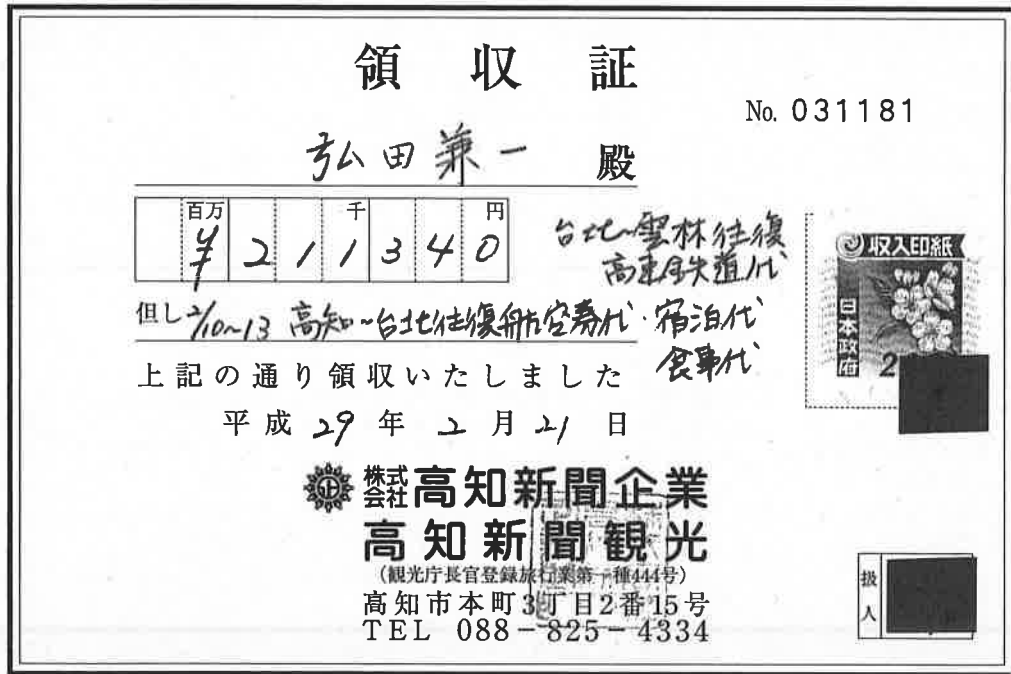 領収証
No. 031181
弘田兼一 殿
百万 千 円
¥211340
台北~雲林往復
高速鉄道代
但し 2/10~13 高知~台北往復航空券代・宿泊代
食事代
上記の通り領収いたしました
平成 29 年 2 月 21 日
収入印紙
日本政府
株式会社 高知新聞企業
高知新聞観光
(観光庁長官登録旅行業第一種444号)
高知市本町3丁目2番15号
TEL 088-825-4334
扱人